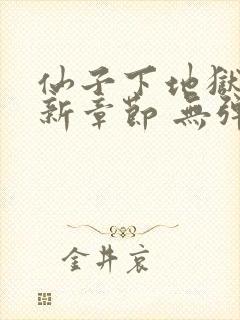 仙子下地獄
新章節 無彈
金井哀